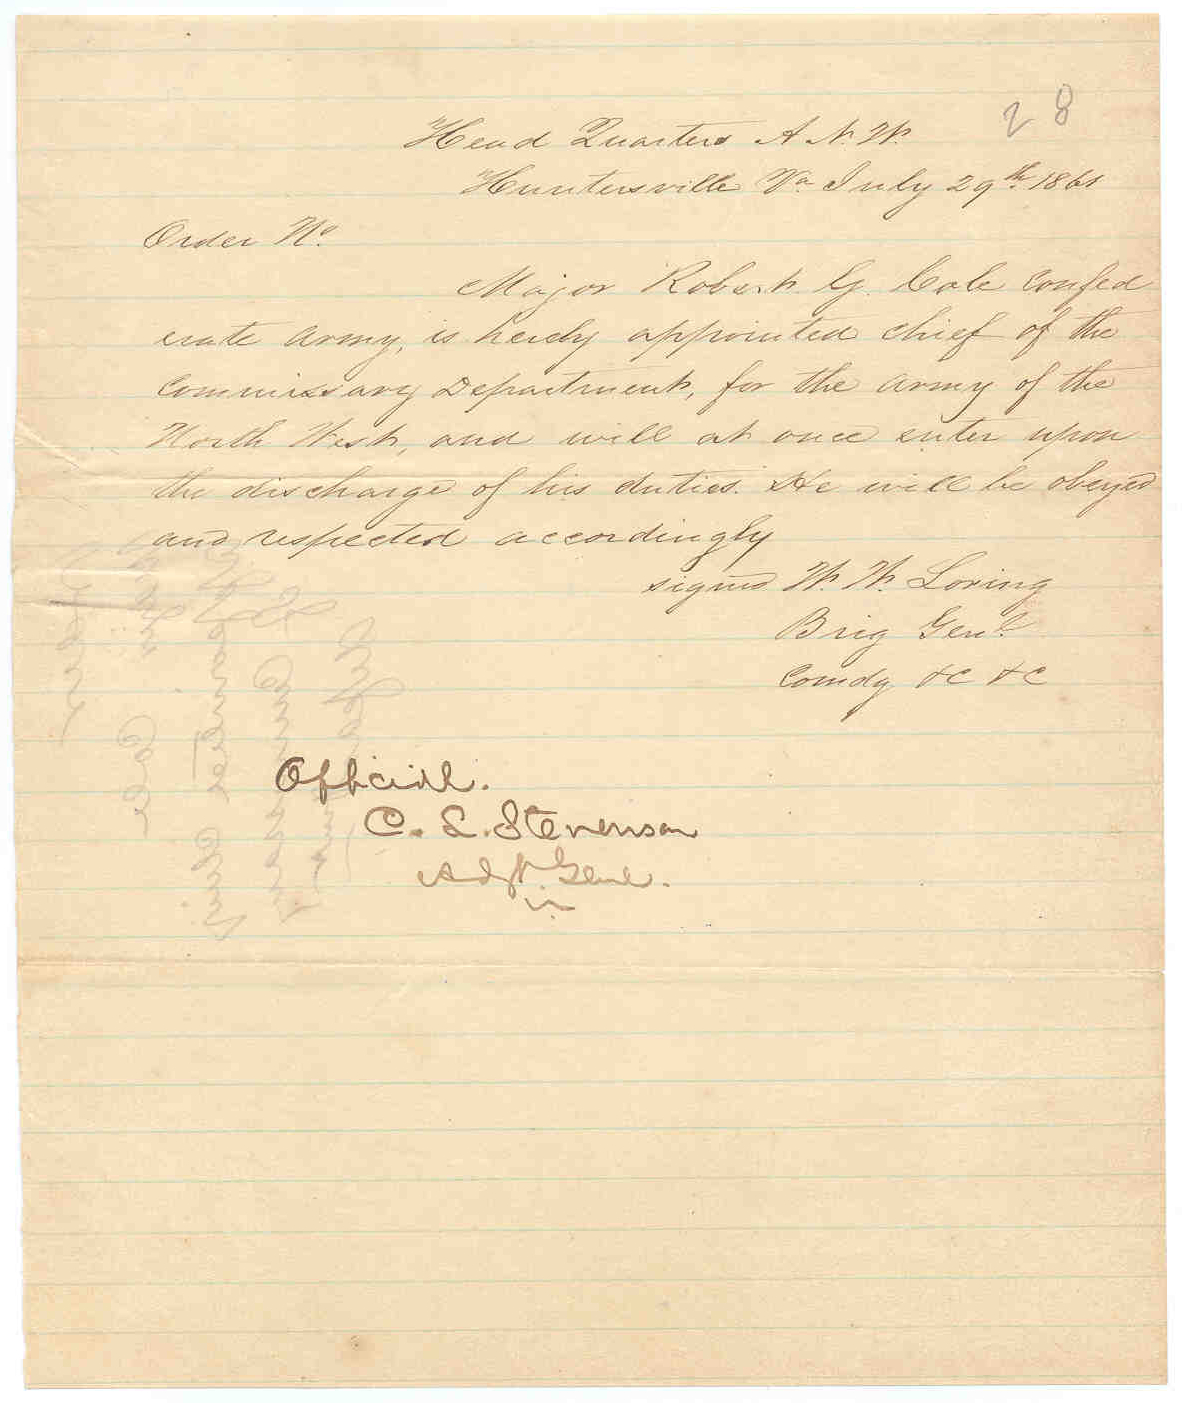 28
Head Quarters A. N. W.
Huntersville Va July 29th 1861
Order No.
Major Robert G. Cole Confed
erate Army, is hereby appointed chief of the
Commissary Department, for the Army of the
North West, and will at once enter upon
the discharge of his duties. He will be obeyed
and respected accordingly
signed W. W. Loring
Brig Genl.
Comdg &C &C
Official.
C. L. Stevenson
Adjt. Genl.